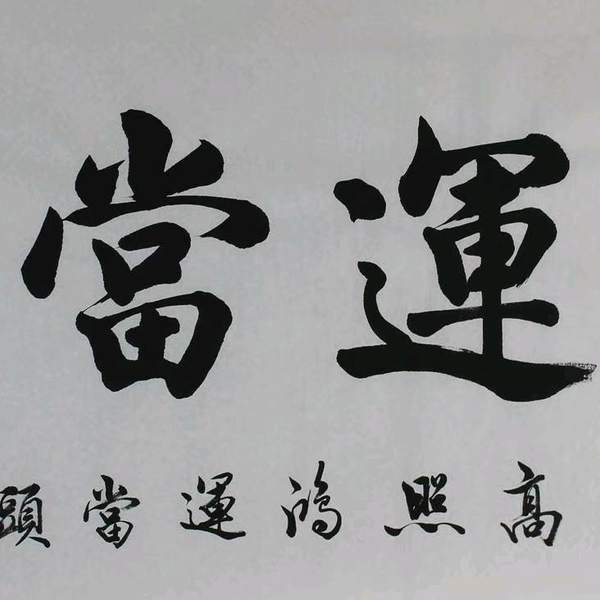 運當
高照鴻運當頭